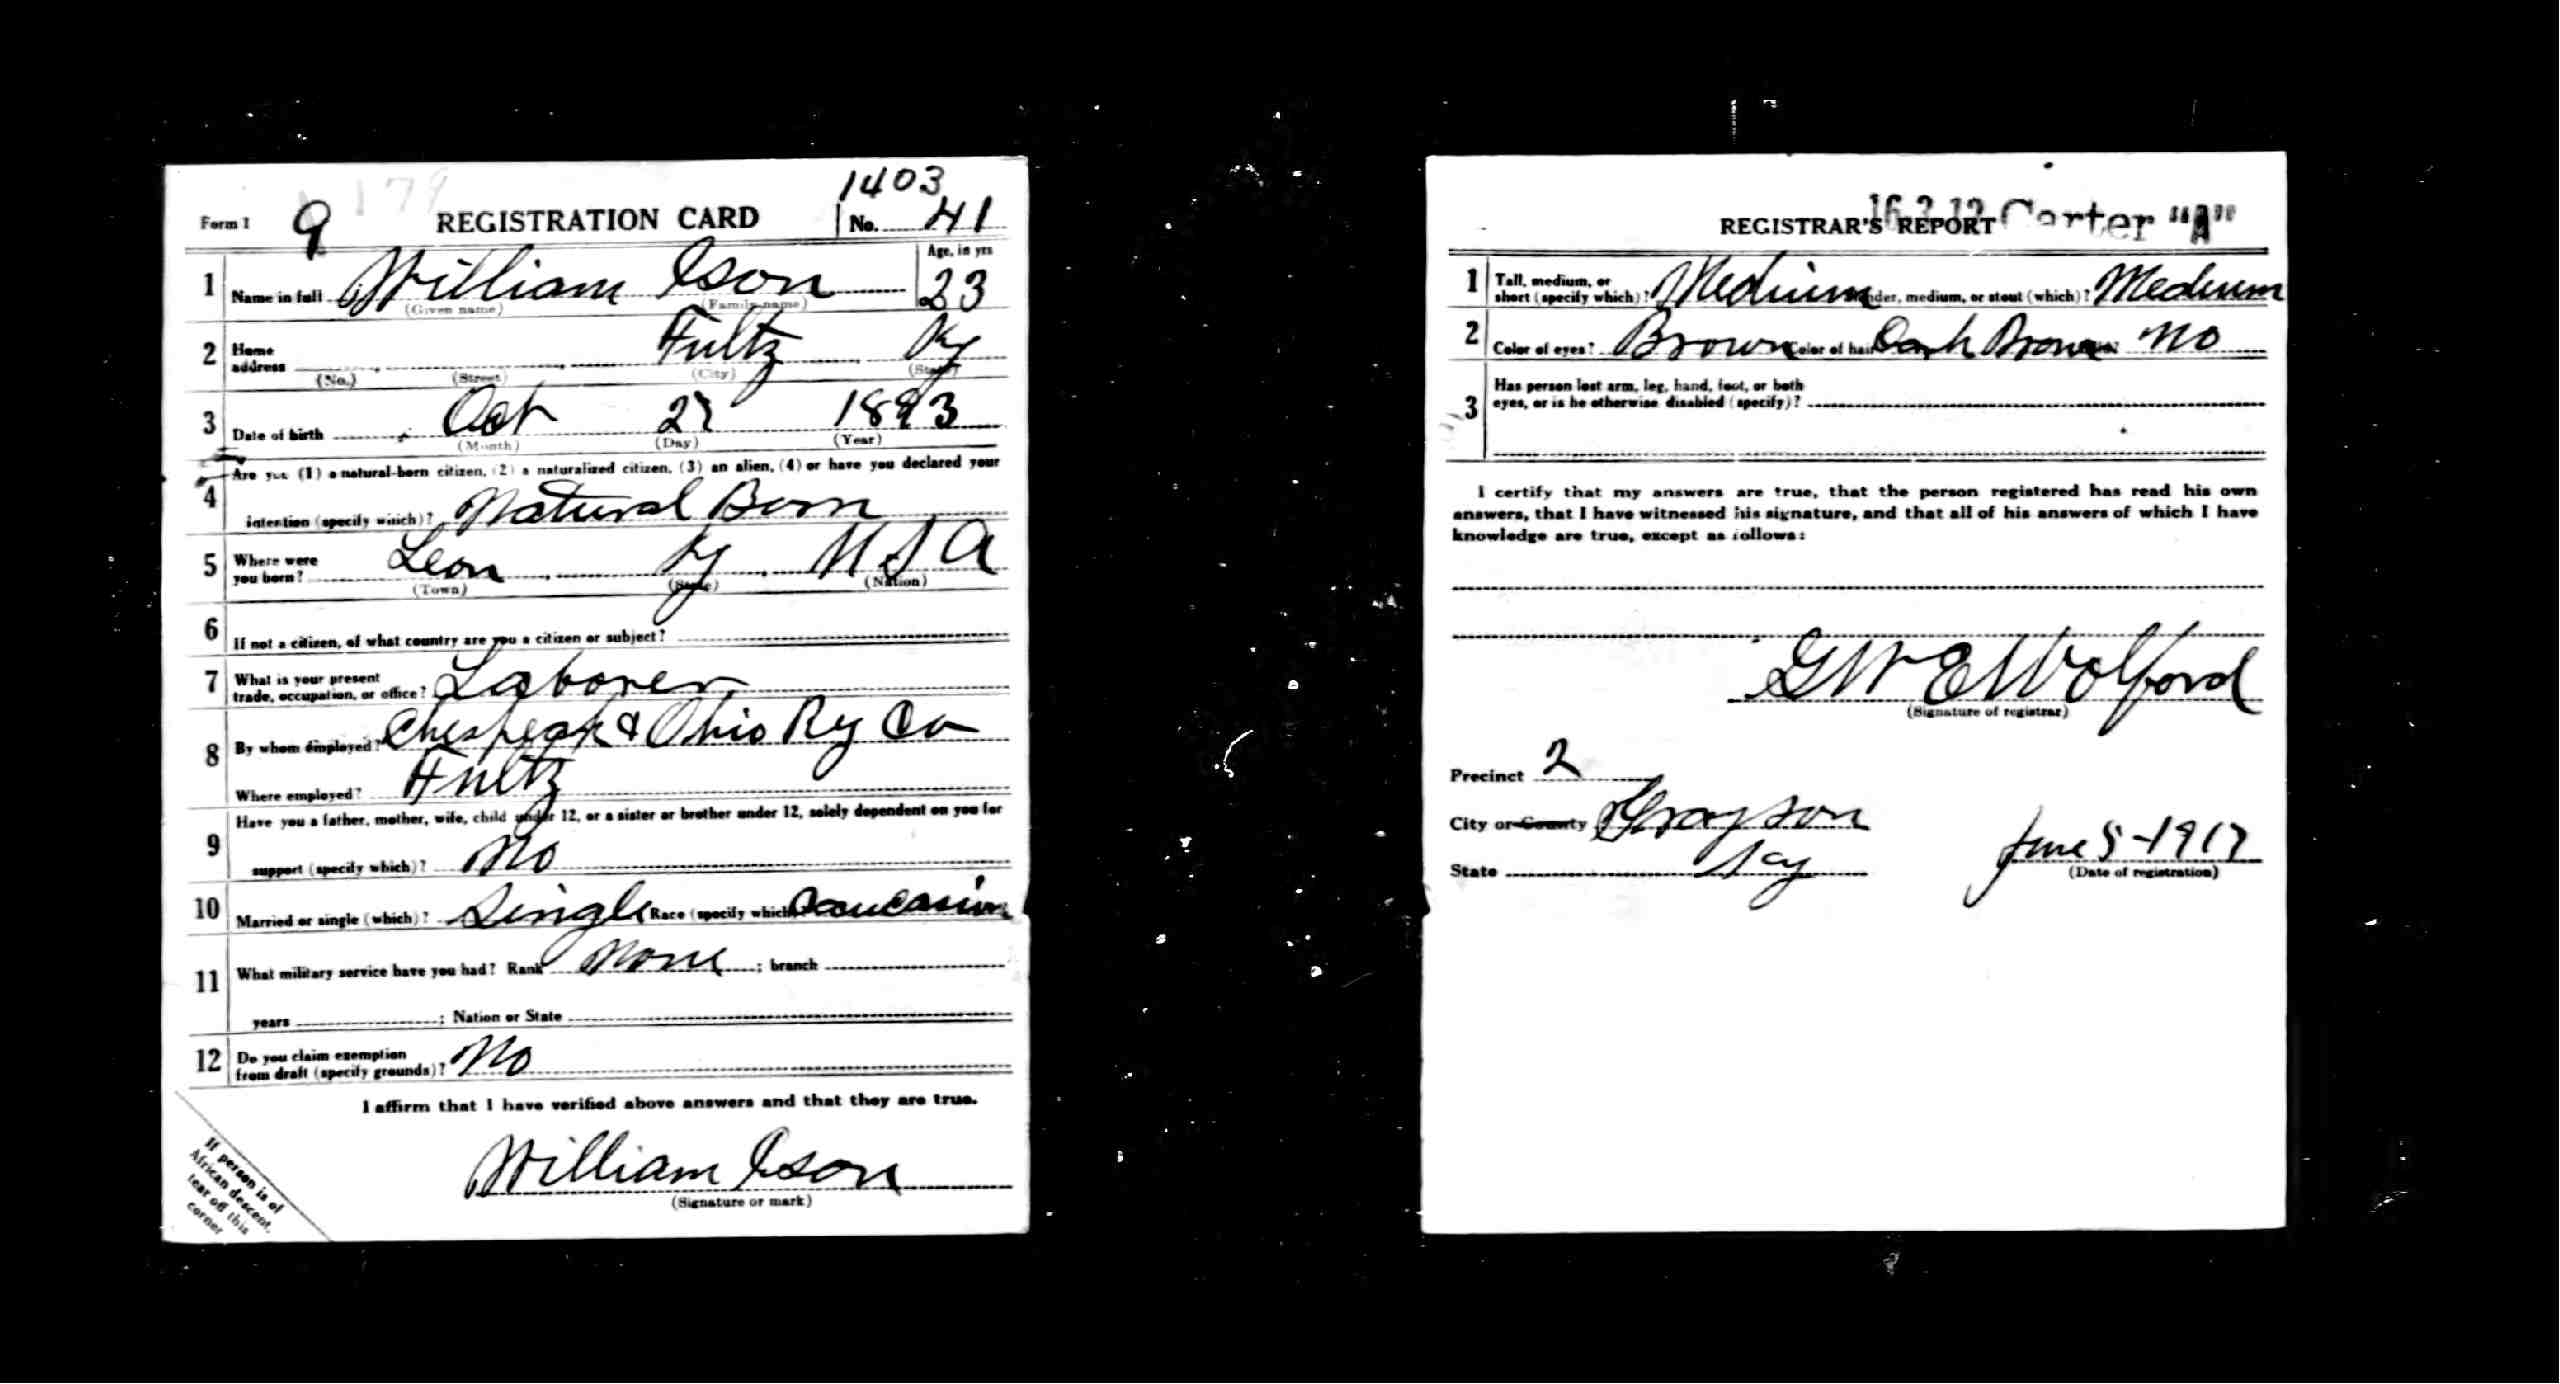 1403
Form 1 9 179 REGISTRATION CARD No. 41
1 Name in full William Ison Age, in yrs 23
(Given name) (Family name)
2 Home address Fultz Ky
(No.) (Street) (City) (State)
3 Date of birth Oct 1893
(Month) (Day) (Year)
4 Are you (1) a natural-born citizen, (2) a naturalized citizen, (3) an alien, (4) or have you declared your
intention (specify which)? Natural Born
5 Where were you born? Leon Ky U S A
(Town) (State) (Nation)
6 If not a citizen, of what country are you a citizen or subject?
7 What is your present trade, occupation, or office? Laborer
8 By whom employed? Chespeak & Ohio Ry Co
Where employed? Fultz
9 Have you a father, mother, wife, child under 12, or a sister or brother under 12, solely dependent on you for
support (specify which)? No
10 Married or single (which)? Single Race (specify which)? Caucasian
11 What military service have you had? Rank None ; branch
years ; Nation or State
12 Do you claim exemption from draft (specify grounds)? No
I affirm that I have verified above answers and that they are true.
William Ison
(Signature or mark)
If person is of
African descent,
tear off this
corner
REGISTRAR'S REPORT Carter "A"
1 Tall, medium, or short (specify which)? Medium medium, or stout (which)? Medium
2 Color of eyes? Brown Color of hair Dark Brown No
3 Has person lost arm, leg, hand, foot, or both
eyes, or is he otherwise disabled (specify)?
I certify that my answers are true, that the person registered has read his own
answers, that I have witnessed his signature, and that all of his answers of which I have
knowledge are true, except as follows:
G W E Wolford
(Signature of registrar)
Precinct 2
City or County Grayson
State Ky June 5-1917
(Date of registration)